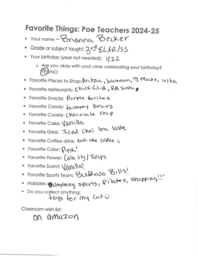 Favorite Things: Poe Teachers 2024-25
Your name - Brianna Becker
Grade or subject taught: 3rd ELAR/SS
Your birthday (year not needed): 1/22
Are you okay with your class celebrating your birthday?
YES/NO
Favorite Places to Shop: Aritzia, lululemon, TJ Maxx, Ulta
Favorite restaurants: Chick-fil-A, RA Sushi
Favorite Snacks: Purple Doritos
Favorite Candy: Gummy bears
Favorite Cookie: Chocolate chip
Favorite Cake: Vanilla
Favorite Drink: Iced chai tea latte
Favorite Coffee drink:
Favorite Color: Pink!
Favorite Flower: Calla lily/Tulips
Favorite Scent: Vanilla!
Favorite Sports Team: Buffalo Bills!
Hobbies: Anything sports, Pilates, shopping!!!
Do you collect anything:
toys for my cat
Classroom wish list:
on amazon